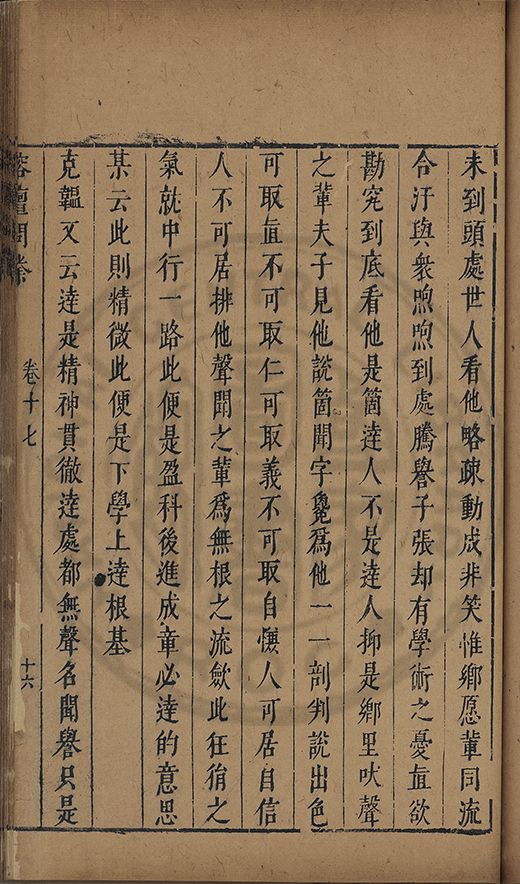 未到頭處世人看他略疎動成非笑惟鄉愿輩同流
合汙與衆喣喣到處騰譽子張却有學術之憂直欲
勘究到底看他是箇達人不是達人抑是鄉里吠聲
之輩夫子見他說箇聞字毚爲他一一剖判說出色
可取直不可取仁可取義不可取自慊人可居自信
人不可居排他聲聞之輩爲無根之流歛此狂狷之
氣就中行一路此便是盈科後進成章必達的意思
某云此則精微此便是下學上達根基
克韞又云達是精神貫徹達處都無聲名聞譽只是
榕壇問業
卷十七
十六